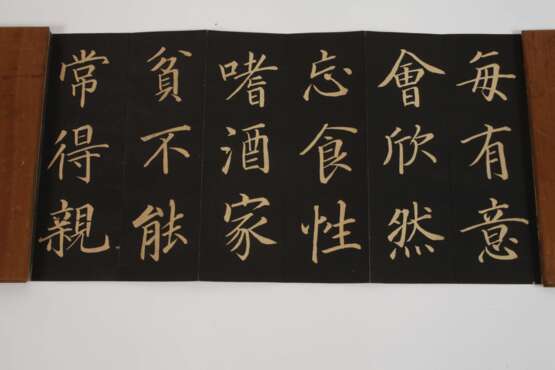 每有意
會欣然
忘食性
嗜酒家
貧不能
常得親